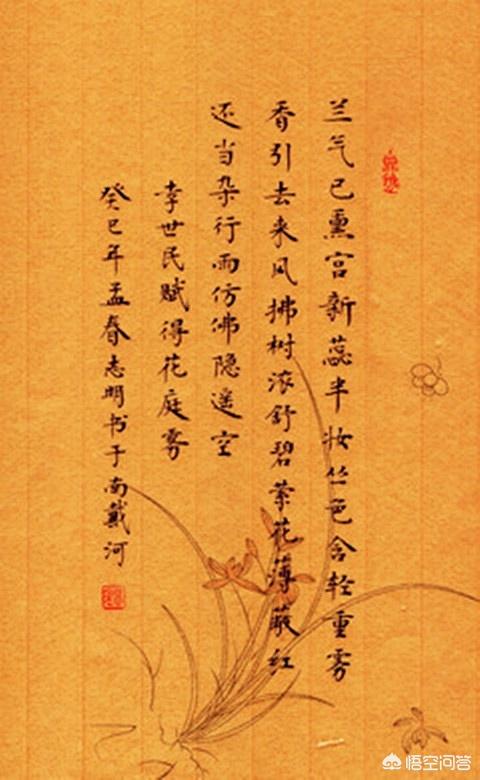 兰气已熏宫新蕊半妆丛色含轻重雾
香引去来风拂树浓舒碧萦花薄蔽红
还当杂行雨仿佛隐遥空
李世民赋得花庭雾
癸巳年孟春志明书于南戴河
悟空问答